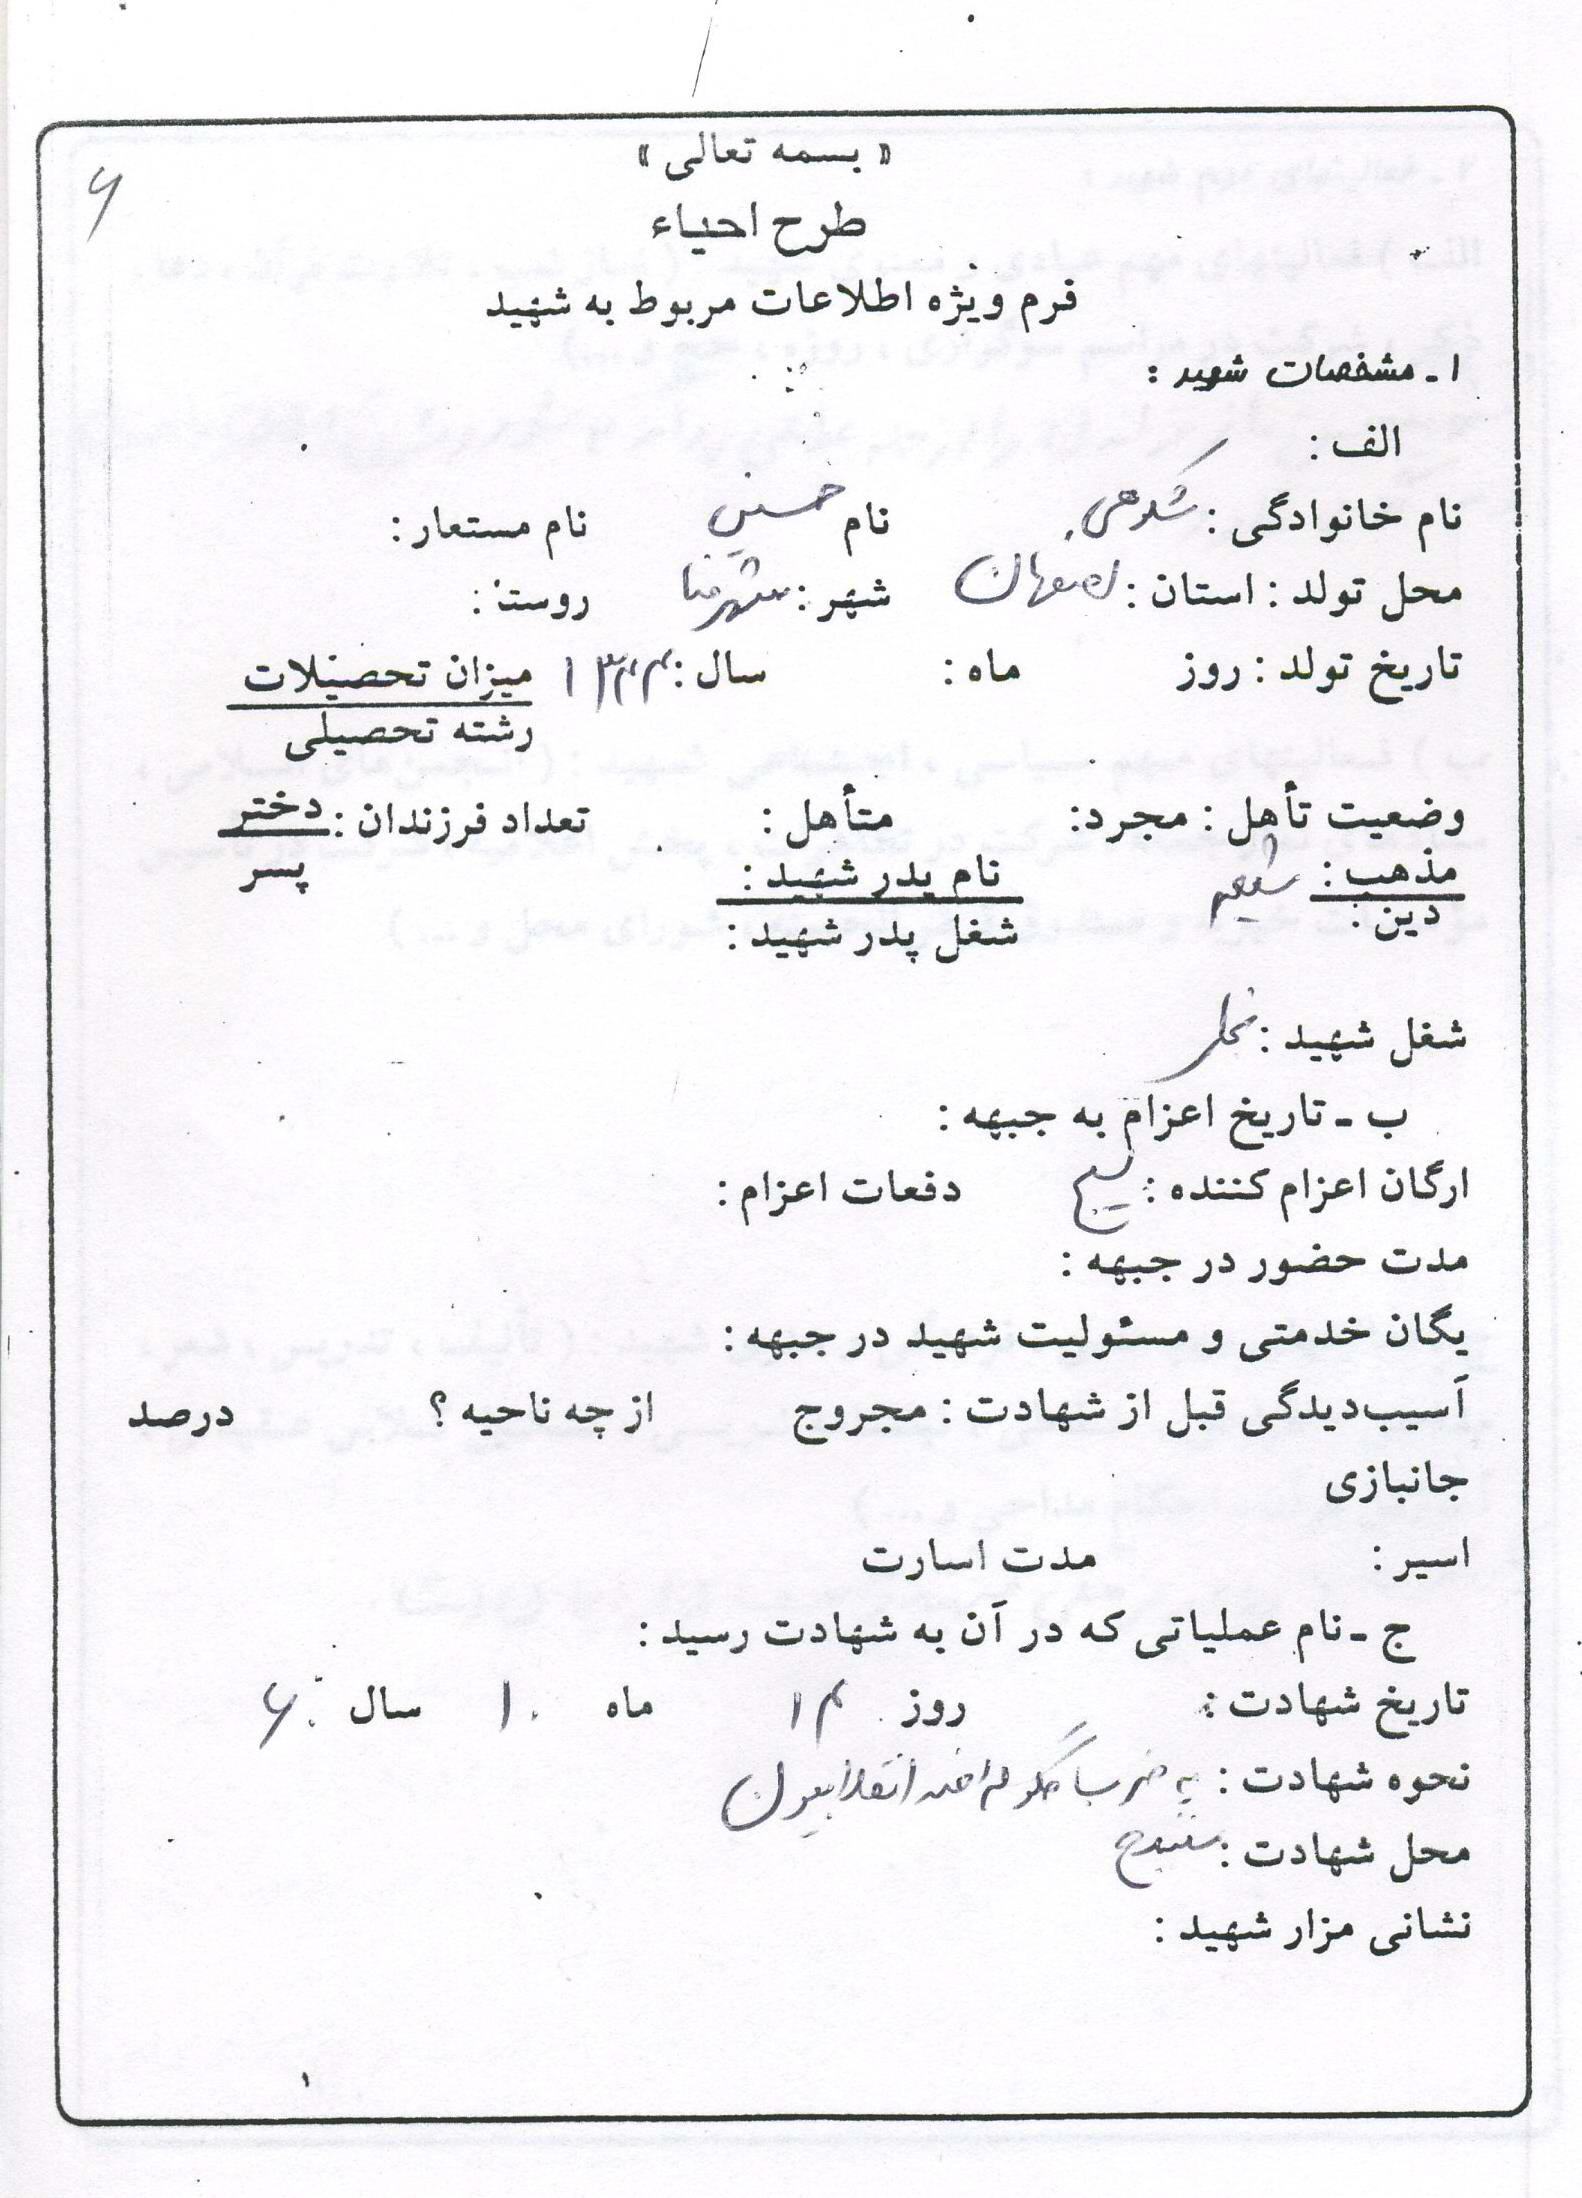 ۶
« بسمه تعالی »
طرح احیاء
فرم ویژه اطلاعات مربوط به شهید
۱ـ مشخصات شهید :
الف :
نام خانوادگی : نام حسین نام مستعار :
محل تولد : استان : اصفهان شهر : شهرضا روستا :
تاریخ تولد : روز ماه : سال : ۱۳۴۴ میزان تحصیلات
رشته تحصیلی
وضعیت تأهل : مجرد: متأهل : تعداد فرزندان : دختر
پسر
مذهب : شیعه نام پدر شهید :
دین : شغل پدر شهید :
شغل شهید :
ب ـ تاریخ اعزام به جبهه :
ارگان اعزام کننده : بسیج دفعات اعزام :
مدت حضور در جبهه :
یگان خدمتی و مسئولیت شهید در جبهه :
آسیب‌دیدگی قبل از شهادت : مجروح از چه ناحیه ؟ درصد
جانبازی
اسیر : مدت اسارت
ج ـ نام عملیاتی که در آن به شهادت رسید :
تاریخ شهادت : روز ۱۴ ماه ۱۰ سال ۶۰
نحوه شهادت : به ضرب گلوله ضد انقلابیون
محل شهادت : سنندج
نشانی مزار شهید :
۱